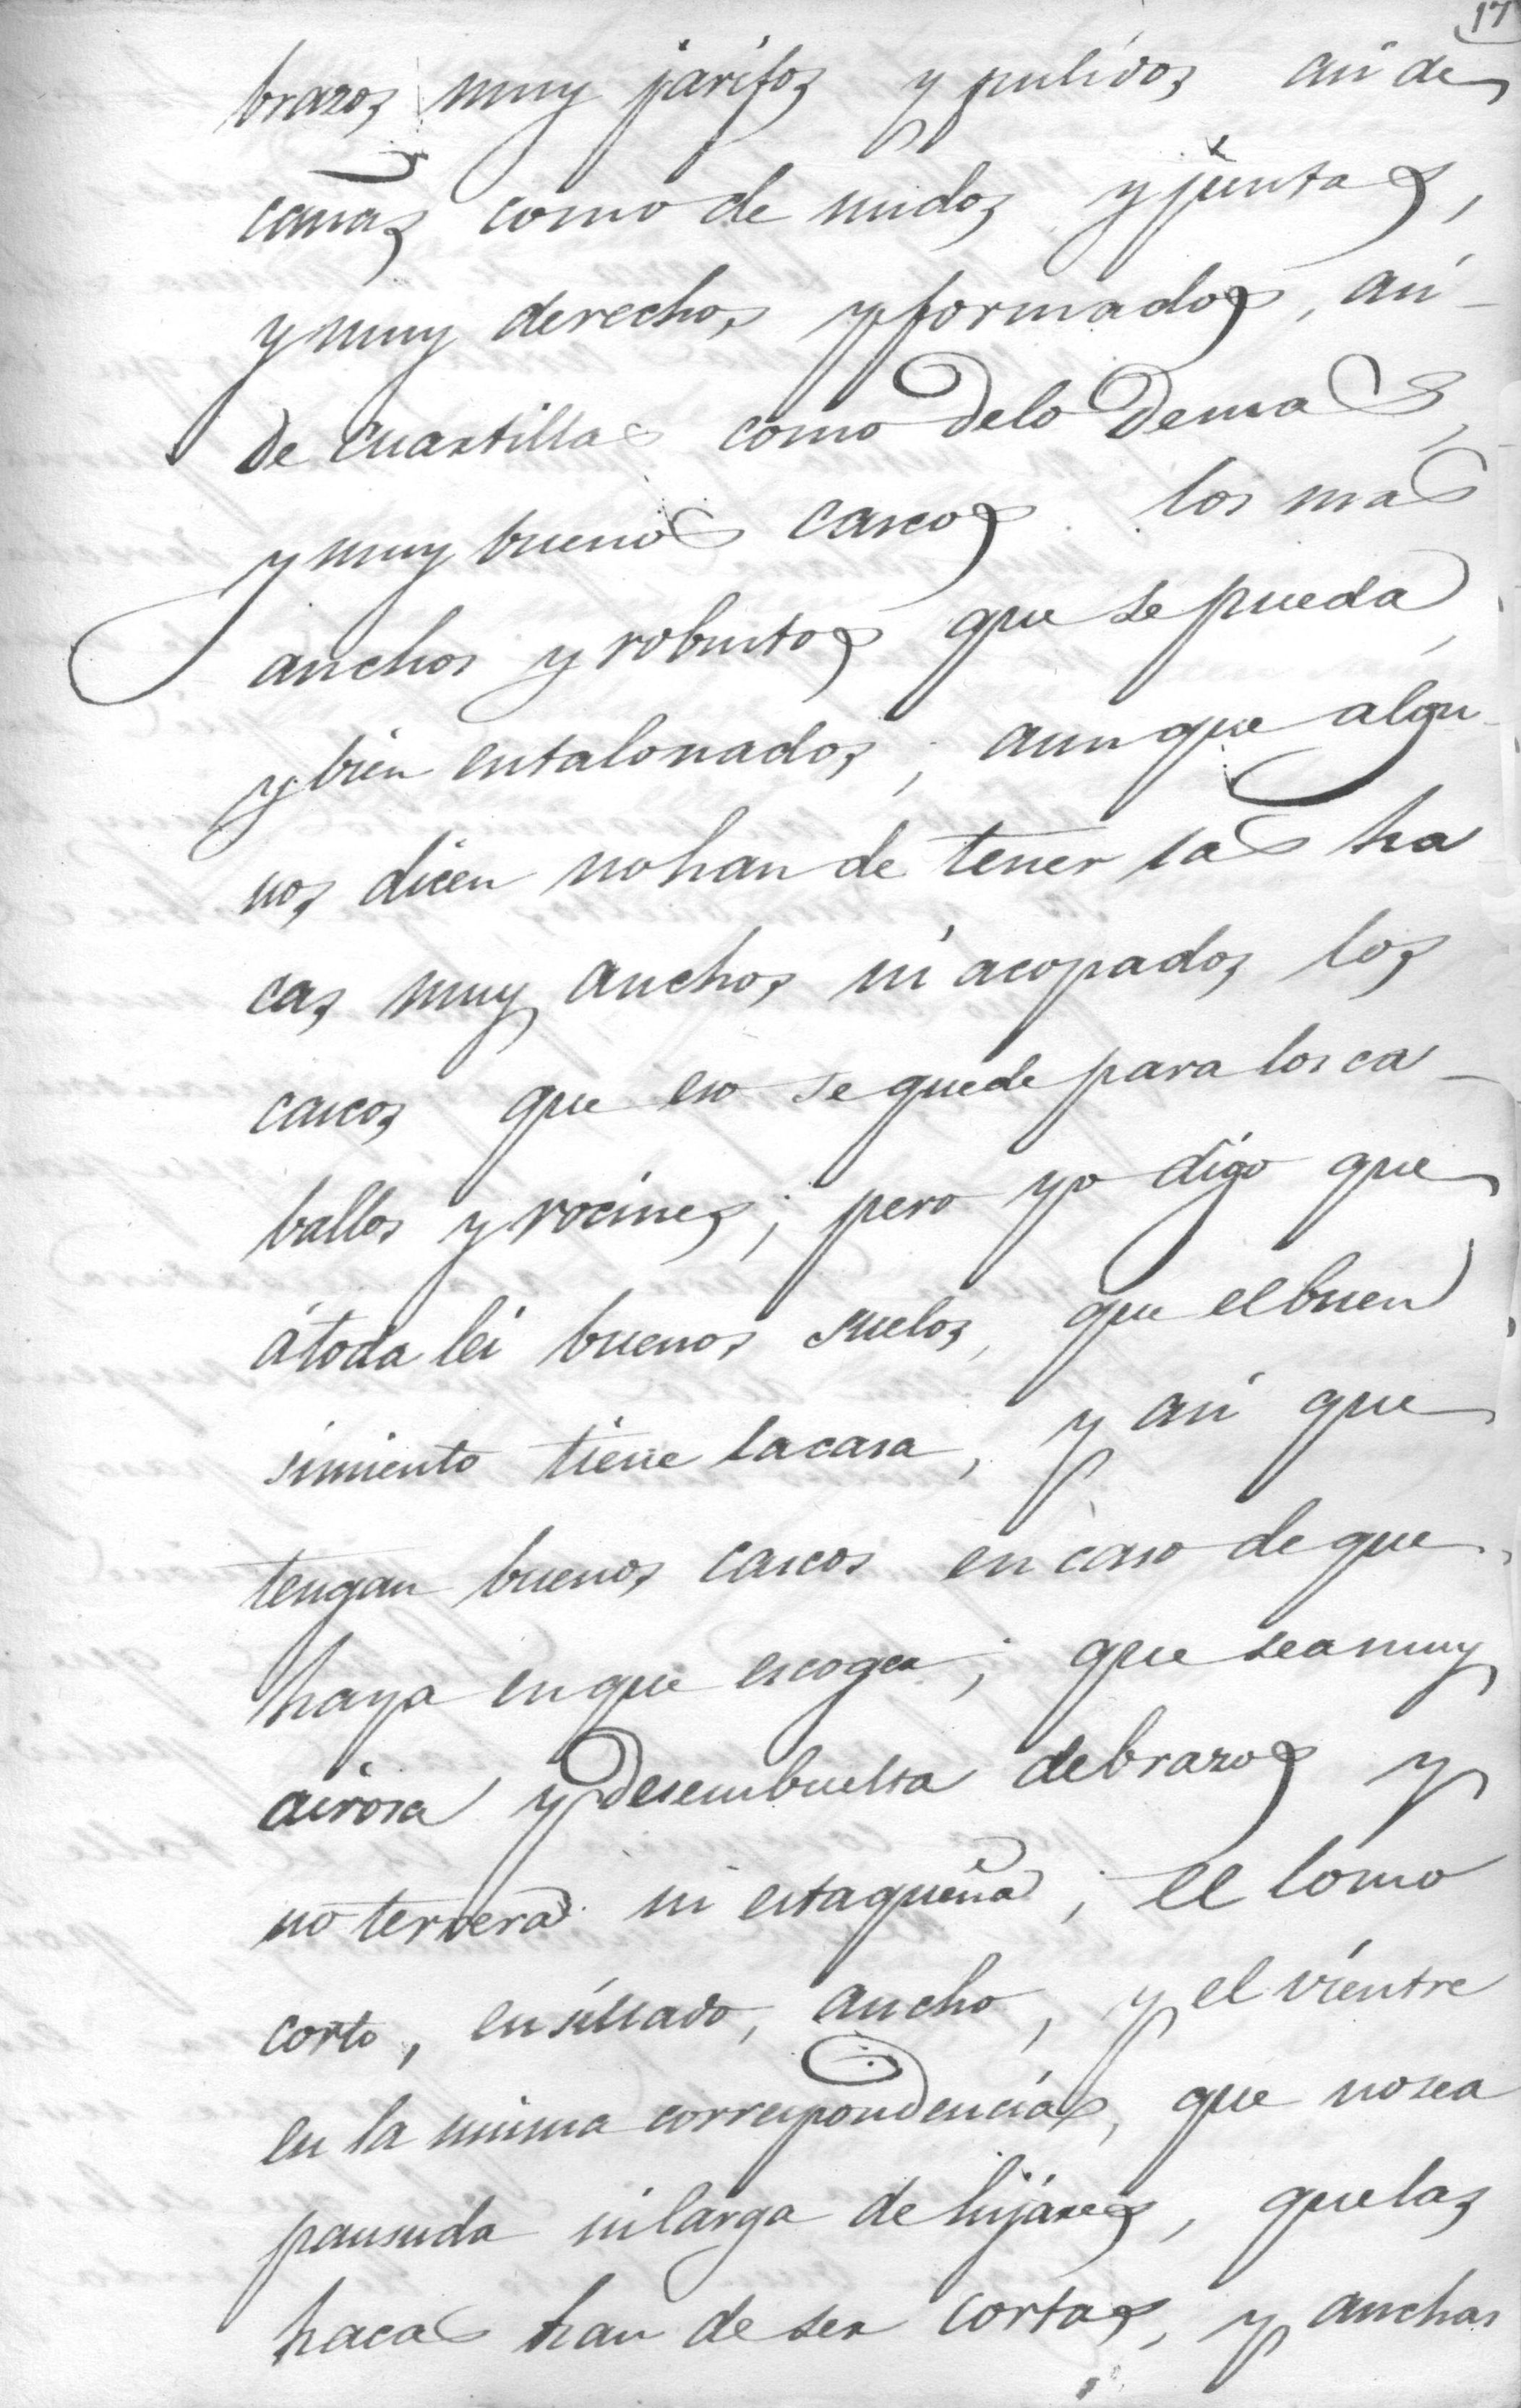 17
brazos muy jarifos y pulidos asi de
cañas como de nudos y juntas,
y muy derechos y formados, asi-
de cuartillas como delo Demas,
y muy buenos cascos los mas
anchos y robustos que se pueda,
y bien entalonados; aunque algu-
nos dicen no han de tener las ha
cas muy anchos ni acopados los
cascos que eso se quede para los ca-
ballos y rocines; pero yo digo que
átoda lei buenos suelos, que el buen
simiento tiene la casa, y asi que
tengan buenos cascos en caso de que
haya en que escoger; que sea muy
airosa y Desembuelta de brazos y
no terrera ni estaqueña; el lomo
corto, ensillado, ancho, y el vientre
en la misma correspondencia, que no sea
pansuda ni larga de hijáres, que las
hacas han de ser cortas, y anchas